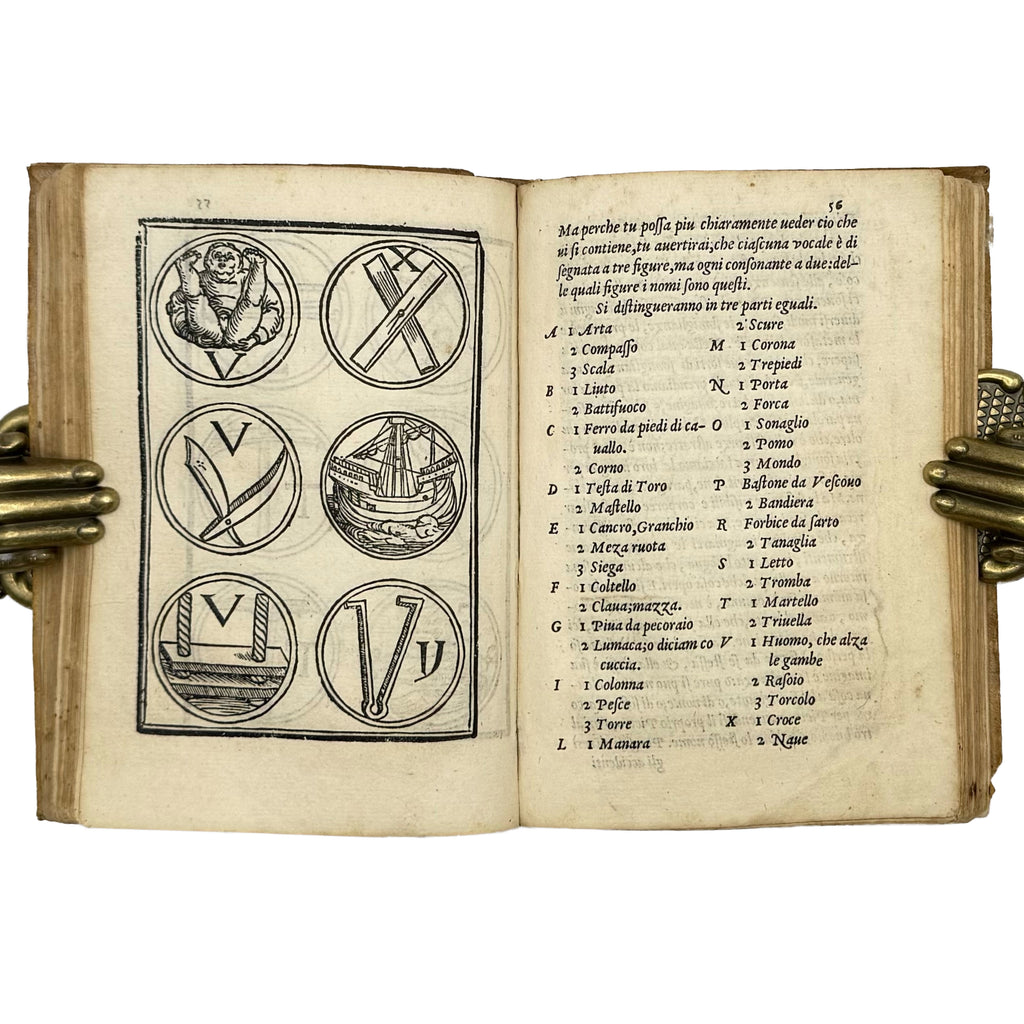 V
X
V
V
V
56
Ma perche tu poſſa piu chiaramente ueder cio che
ui ſi contiene, tu auertirai, che ciaſcuna vocale è di
ſegnata a tre figure, ma ogni conſonante a due: del-
le quali figure i nomi ſono queſti.
Si diſtingueranno in tre parti eguali.
A 1 Arta
2 Compaſſo
3 Scala
B 1 Liuto
2 Battifuoco
C 1 Ferro da piedi di ca-
uallo.
2 Corno
D 1 Teſta di Toro
2 Maſtello
E 1 Cancro, Granchio
2 Meza ruota
3 Siega
F 1 Coltello
2 Claua; mazza.
G 1 Piua da pecoraio
2 Lumaca; o diciam co
cuccia.
I 1 Colonna
2 Peſce
3 Torre
L 1 Manara
2 Scure
M 1 Corona
2 Trepiedi
N 1 Porta
2 Forca
O 1 Sonaglio
2 Pomo
3 Mondo
P Baſtone da Veſcouo
2 Bandiera
R Forbice da ſarto
2 Tanaglia
S 1 Letto
2 Tromba
T 1 Martello
2 Triuella
V 1 Huomo, che alza
le gambe
2 Raſoio
3 Torcolo
X 1 Croce
2 Naue